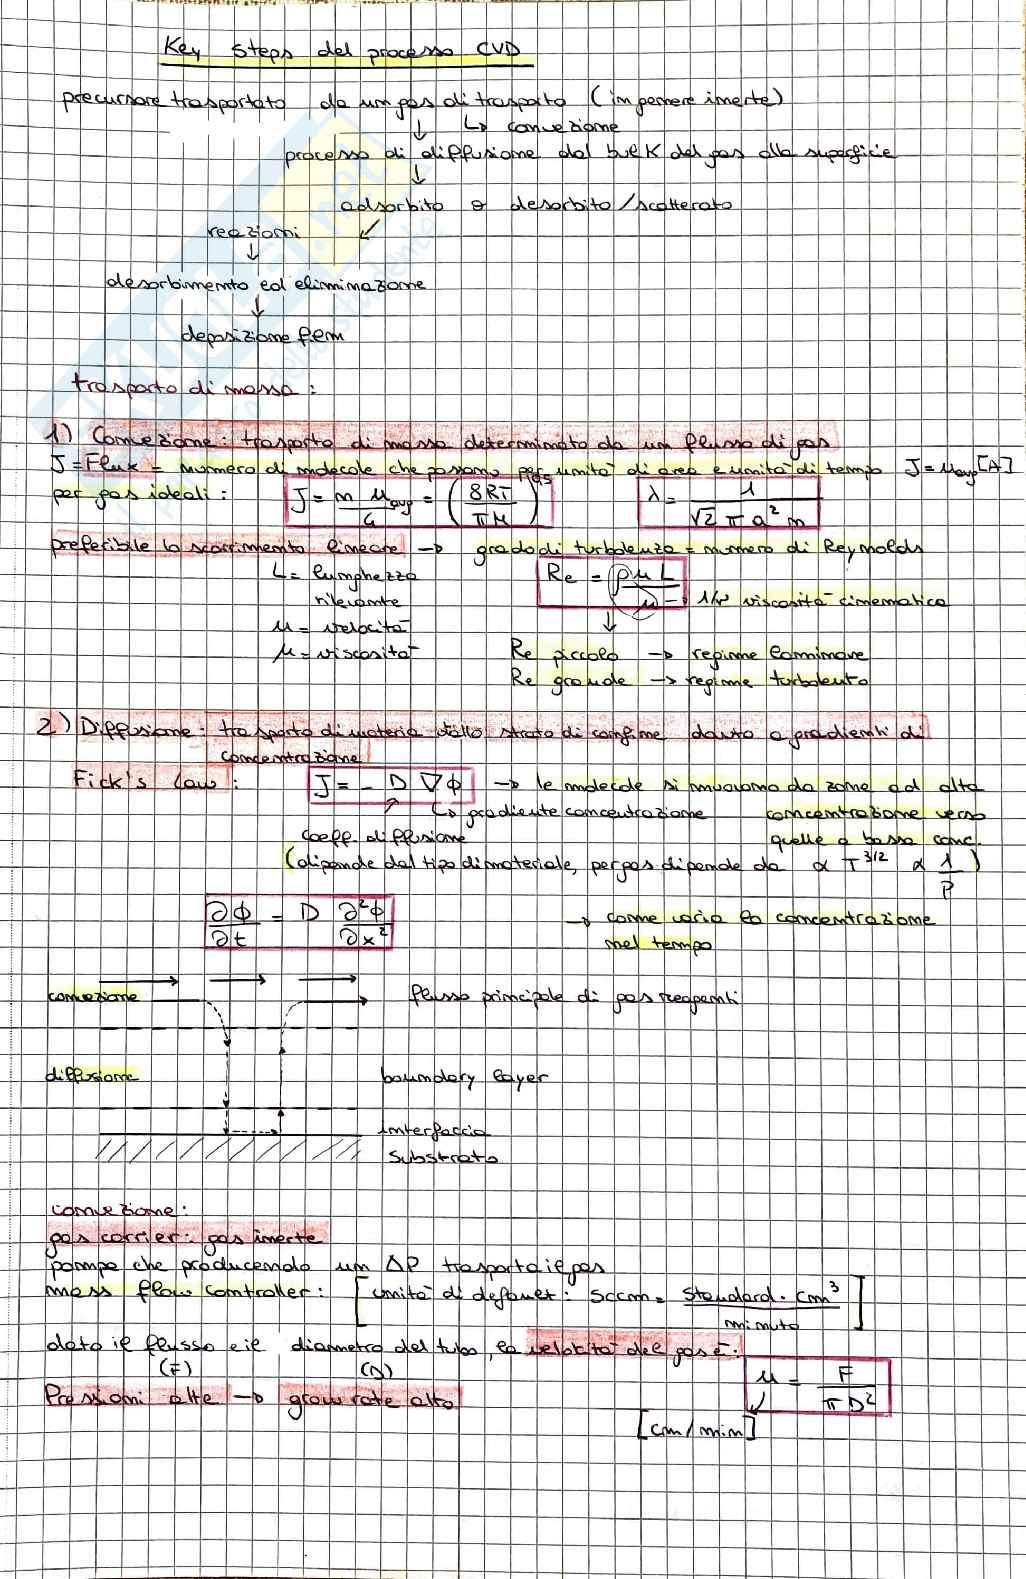 Key steps del processo CVD
precursore trasportato da un gas di trasporto (in genere inerte)
↓ ↳ convezione
processo di diffusione dal bulk del gas alla superficie
↓
adsorbito o desorbito/scatterato
reazioni ↙
↓
desorbimento ed eliminazione
↓
deposizione film
trasporto di massa:
1) Convezione: trasporto di massa determinato da un flusso di gas
J = Flux = numero di molecole che passano per unità di area e unità di tempo J = u avg [A]
per gas ideali: J = n u avg / 4 = (8RT / πM)^0,5 λ = 1 / √2 π a² n
preferibile lo scorrimento lineare → grado di turbolenza = numero di Reynolds
L = lunghezza rilevante Re = ρ u L / μ → 1/ν viscosità cinematica
u = velocità ↓
μ = viscosità Re piccolo → regime laminare
Re grande → regime turbolento
2) Diffusione: trasporto di materia dallo strato di confine dovuto a gradienti di
concentrazione
Fick's law: J = - D ∇ϕ → le molecole si muovono da zone ad alta
↳ gradiente concentrazione concentrazione verso
coeff. diffusione quelle a bassa conc.
(dipende dal tipo di materiale, per gas dipende da ∝ T^3/2 ∝ 1/P)
∂ϕ/∂t = D ∂²ϕ/∂x² → come varia la concentrazione
nel tempo
convezione flusso principale di gas reagenti
diffusione boundary layer
interfaccia
substrato
convezione:
gas carrier: gas inerte
pompe che producendo un ΔP trasporta il gas
mass flow controller: [unità di default: sccm = standard · cm³ / minuto]
dato il flusso e il diametro del tubo, la velocità del gas è:
(F) (D) u = F / π D²
Pressioni alte → grow rate alto
[cm/min]